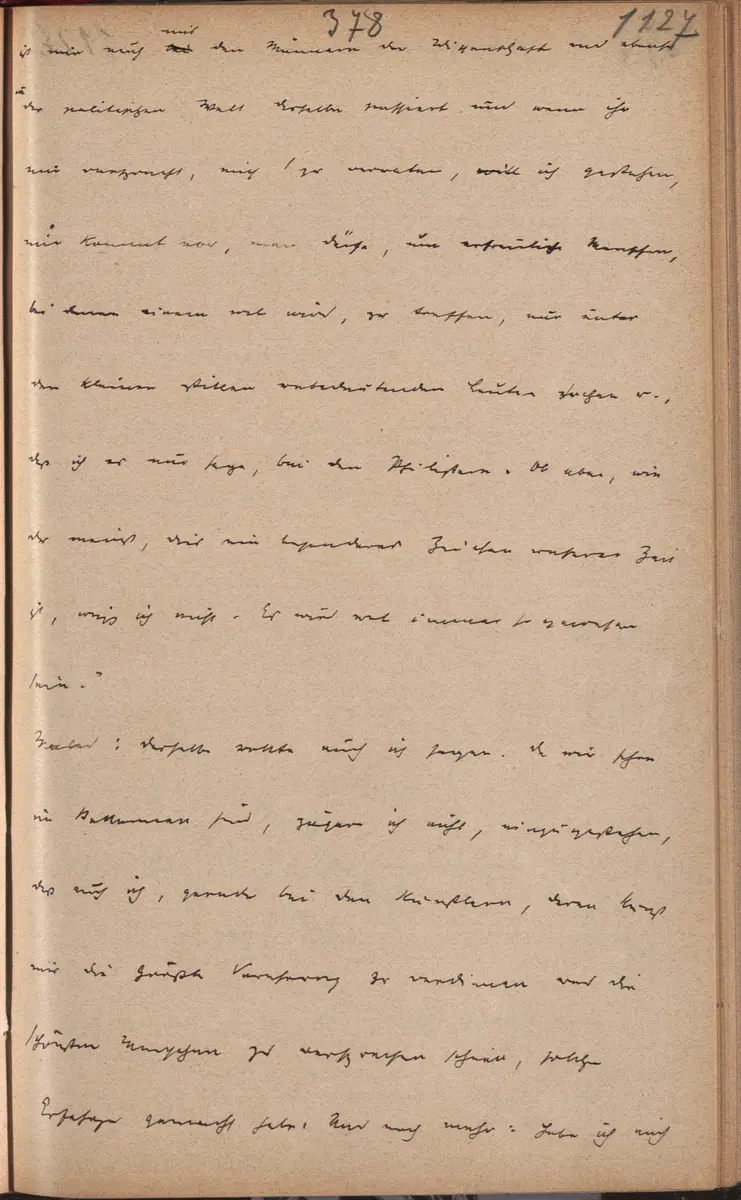 378 1127
mit
ist mir auch den Männern der Wissenschaft und ebenso
in
der politischen Welt dasselbe passiert und wenn ihr
mir versprecht, mich zu verraten, will ich gestehen,
mir kommt vor, man dürfe, um erfreuliche Menschen,
bei denen einem wol wird, zu treffen, nur unter
den kleinen stillen unbedeutenden Leuten suchen u.,
daß ich es nur sage, bei den Philistern. Ob aber, wie
der meinst, dies ein besonderes Zeichen unserer Zeit
ist, weiß ich nicht. Es wird wol immer so gewesen
sein."
: dasselbe wollte auch ich sagen. Da wir schon
im sind, zögere ich nicht, einzugestehen,
daß auch ich, gerade bei den Künstlern, deren Kunst
mir die größte Verehrung zu verdienen und die
schönsten Menschen zu versprechen schien, solche
gemacht habe. Und noch mehr: habe ich mich